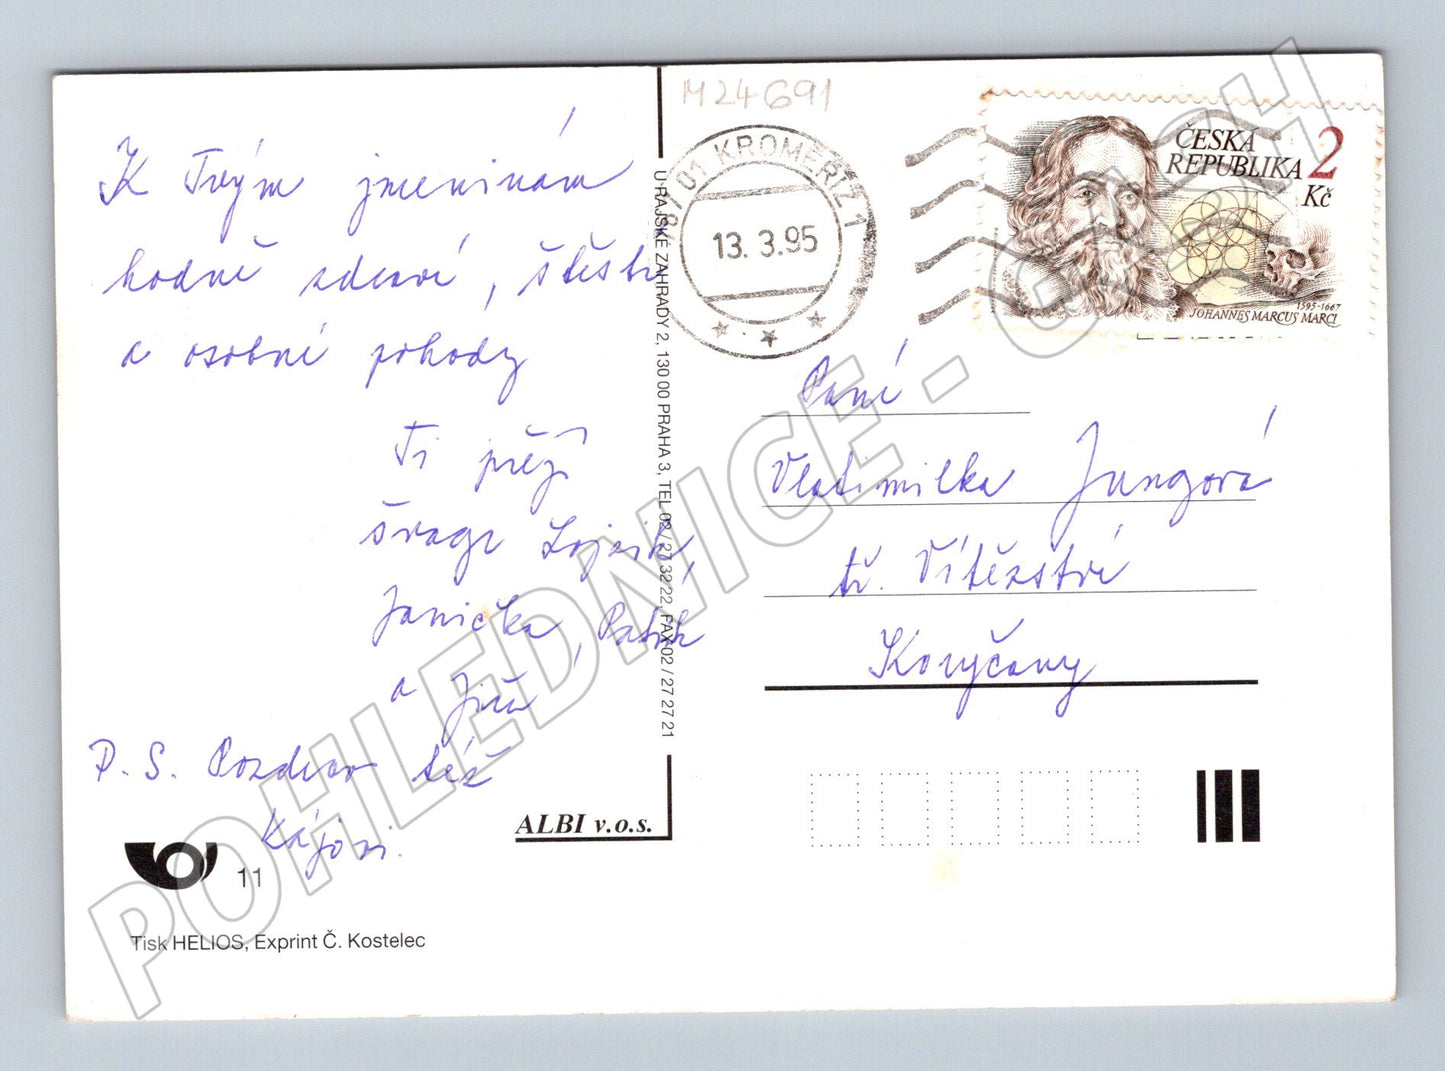 M24691
K Tvým jmeninám
hodně zdraví, štěstí
a osobní pohody
Ti přejí
švagr
Janička, Patrik
a Jiří
P.S. Pozdrav též
Kájovi.
11
Tisk HELIOS, Exprint Č. Kostelec
ALBI v.o.s.
U RAJSKÉ ZAHRADY 2, 130 00 PRAHA 3, TEL 02 / 27 32 22, FAX 02 / 27 27 21
01 KROMĚŘÍŽ 1
13. 3. 95
ČESKÁ
REPUBLIKA
2
Kč
1595-1667
JOHANNES MARCUS MARCI
Paní
Vladimilka Jungová
tř. Vítězství
Koryčany
POHLEDNICE - C